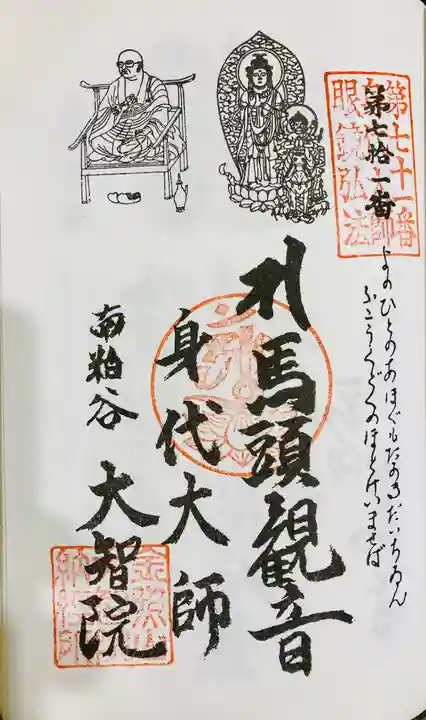 第七拾一番
第七十一番
眼鏡弘法
よのひとのあほぐもたかきだいちゐん
ふこうくどくのほとけいませば
札馬頭観音
身代大師
南粕谷
大智院